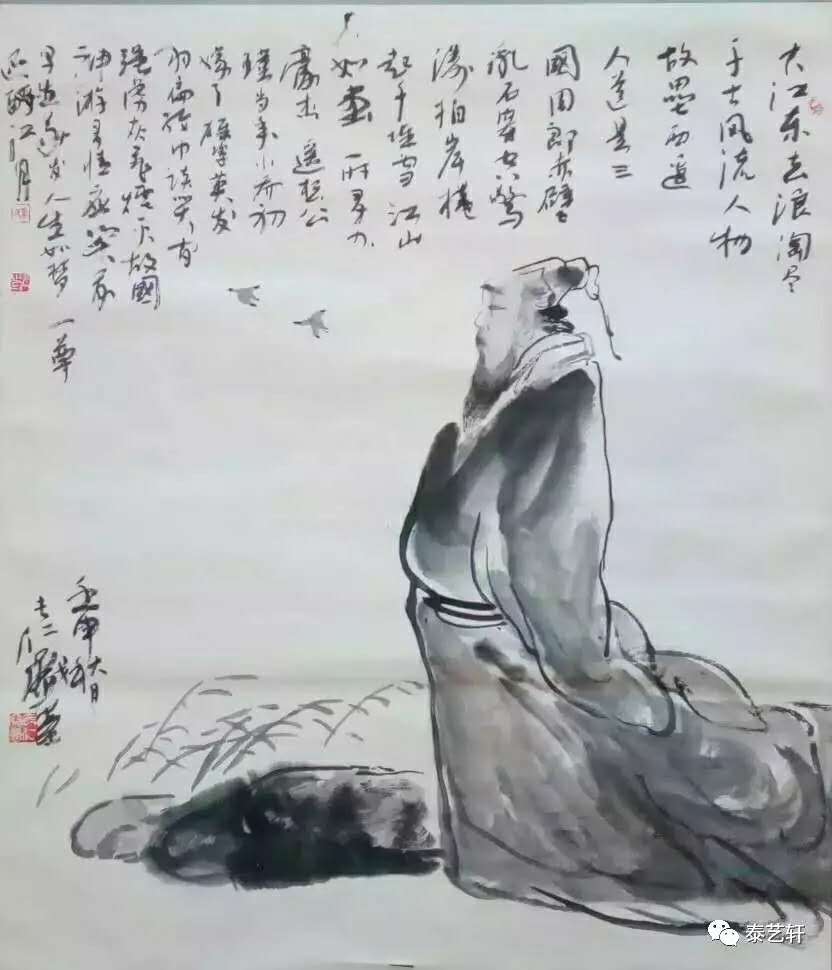 大江东去浪淘尽
千古风流人物
故壘西邊
人道是三
國周郎赤壁
亂石穿空驚
濤拍岸捲
起千堆雪江山
如畫一时多少
豪杰遥想公
瑾当年小乔初
嫁了雄姿英发
羽扇纶巾谈笑间
强虏灰飛烟灭故國
神游多情應笑我
早生华发人生如梦一尊
还酹江月
壬申
泰艺轩